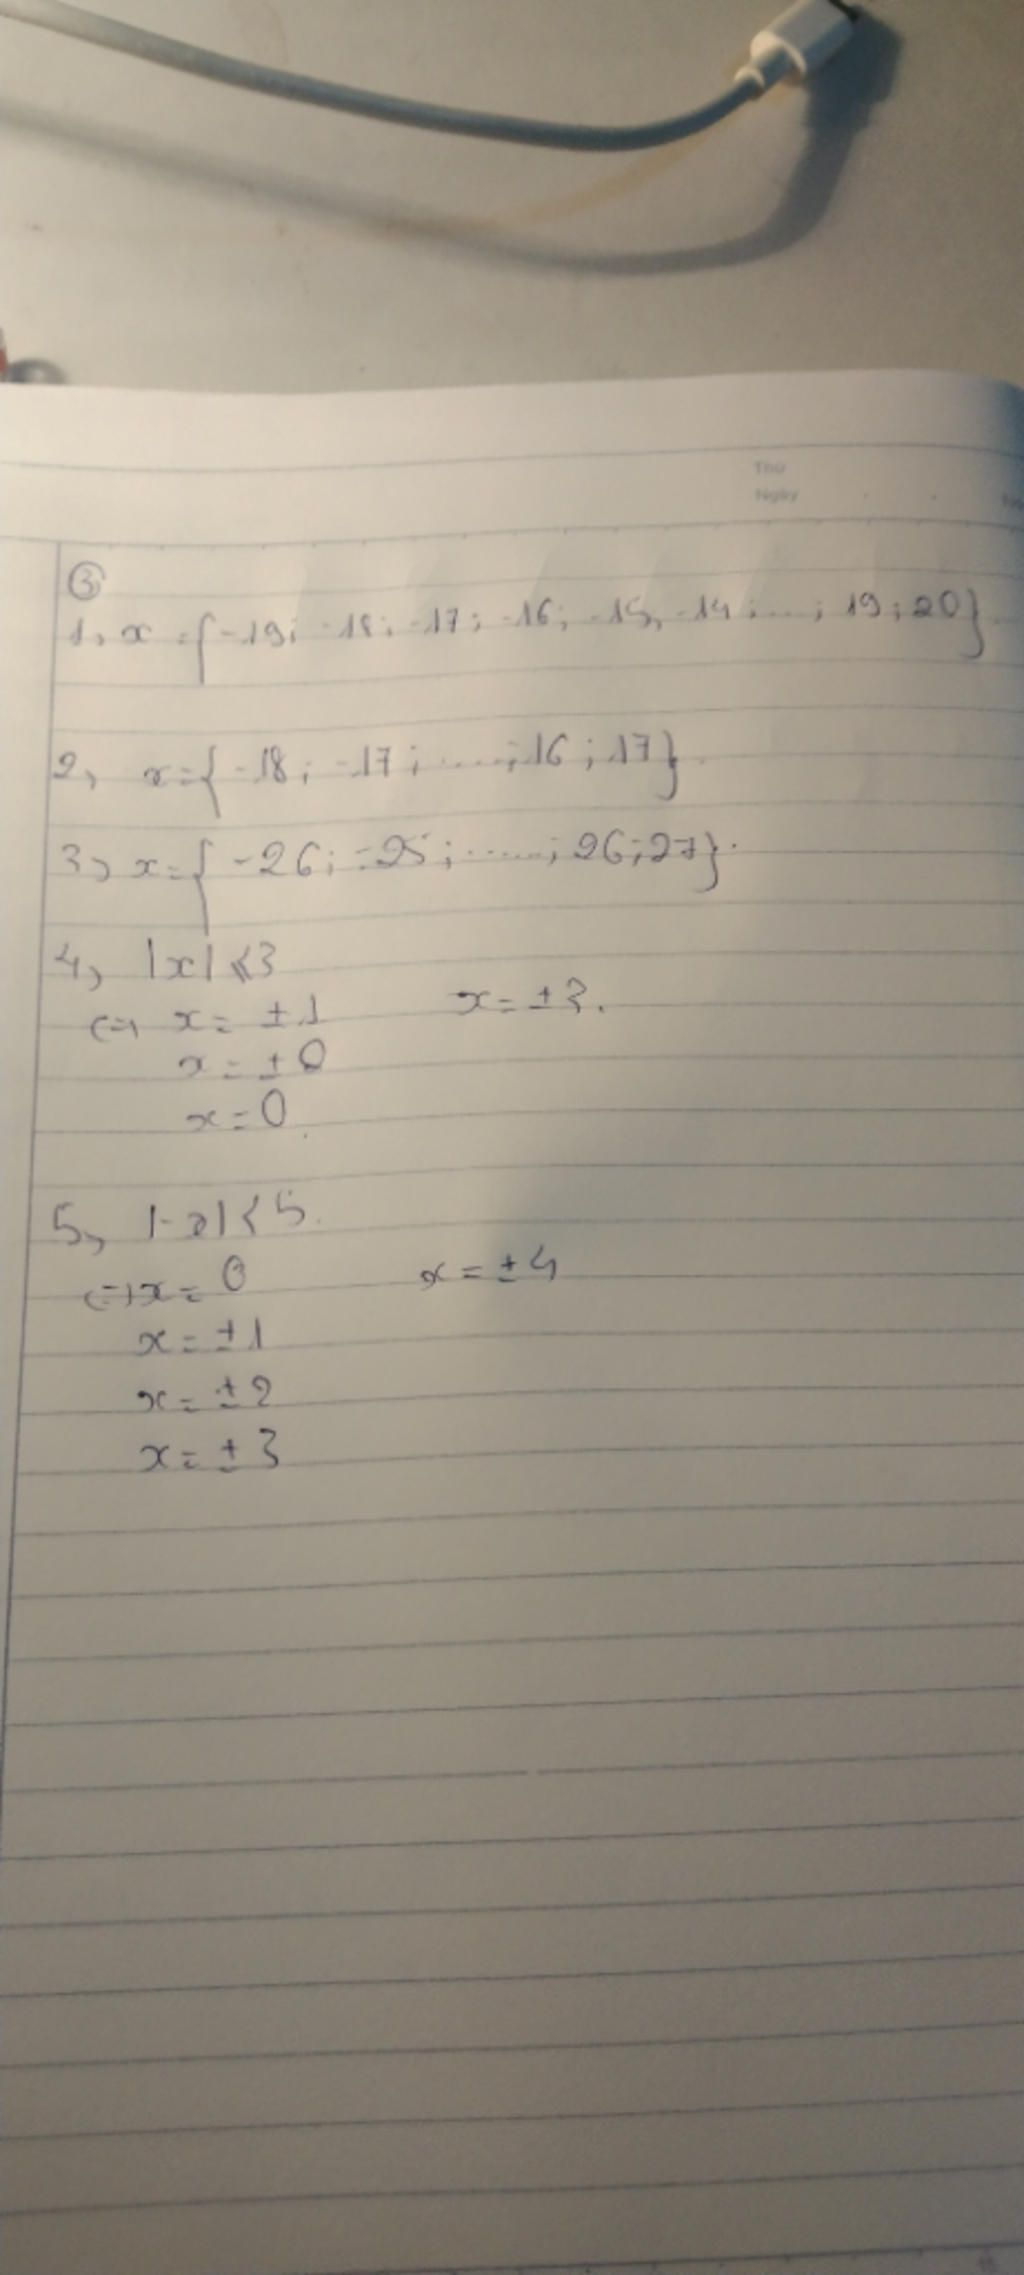 Thứ
Ngày
③
1, x = { -19; -18; -17; -16; -15, -14; ...; 19; 20}
2, x = { -18; -17; ....; 16; 17}.
3, x = { -26; -25; .....; 26; 27}.
4, |x| ≤ 3
<=> x = ±1 x = ±3.
x = ±0
x = 0
5, |-x| < 5.
<=> x = 0 x = ±4
x = ±1
x = ±2
x = ±3